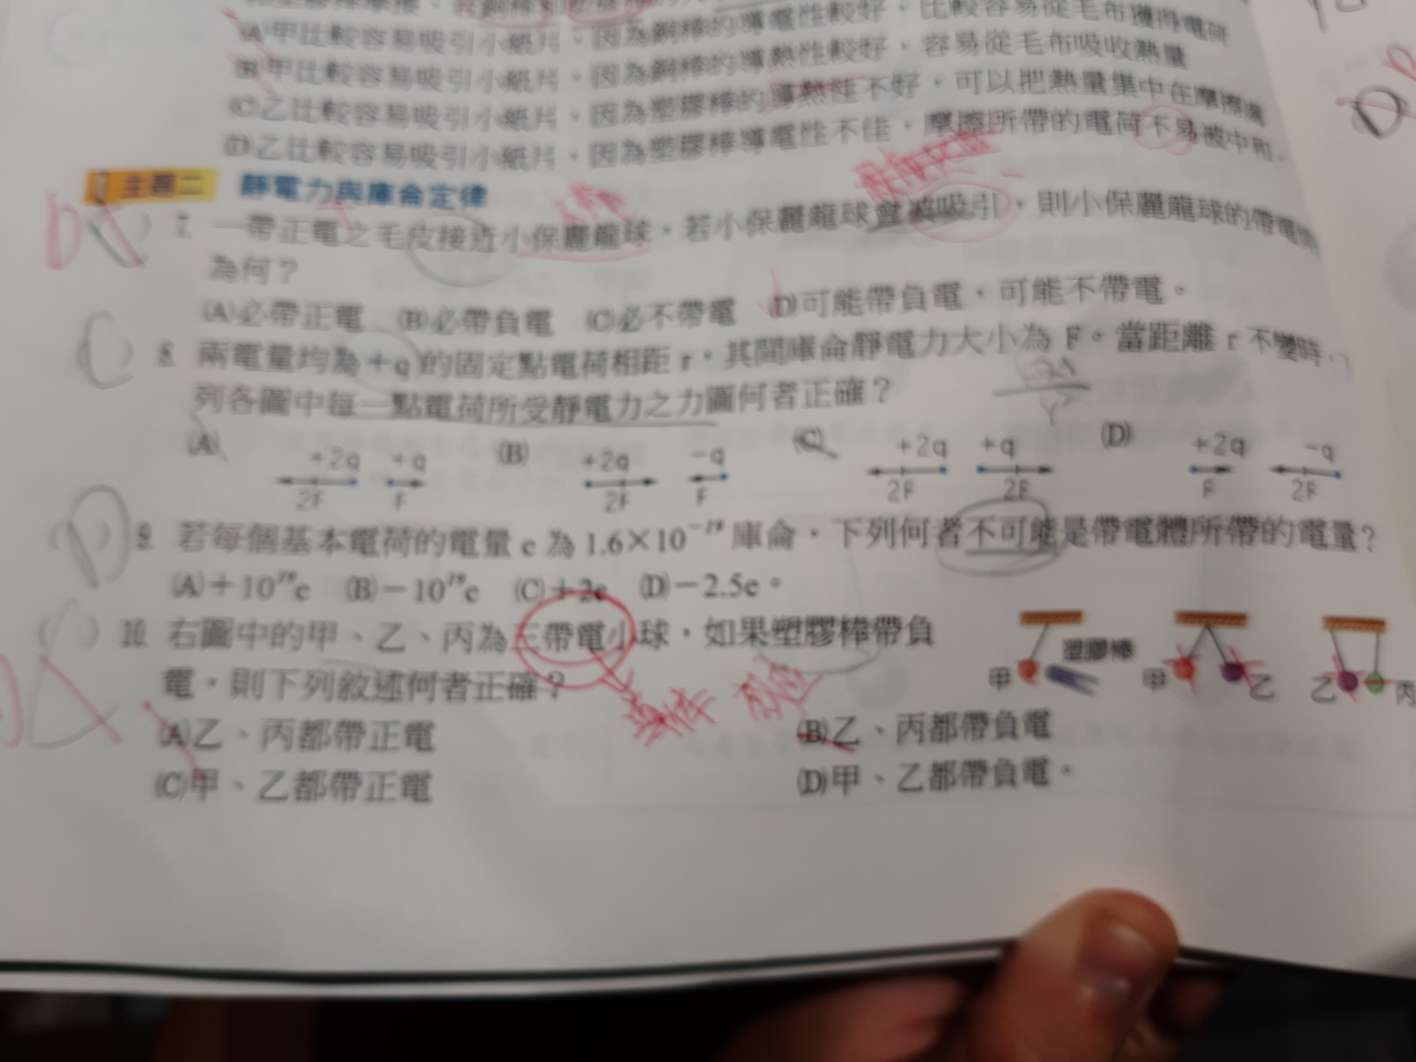 (A)甲比較容易吸引小紙片，因為銅棒的導電性較好，比較容易從毛布獲得電荷
(B)甲比較容易吸引小紙片，因為銅棒的導熱性較好，容易從毛布吸收熱量
(C)乙比較容易吸引小紙片，因為塑膠棒的導熱性不好，可以把熱量集中在摩擦處
(D)乙比較容易吸引小紙片，因為塑膠棒導電性不佳，摩擦所帶的電荷不易被中和。
主題二 靜電力與庫侖定律
D ( ) 7. 一帶正電之毛皮接近小保麗龍球，若小保麗龍球會被吸引，則小保麗龍球的帶電
為何？
(A)必帶正電 (B)必帶負電 (C)必不帶電 (D)可能帶負電，可能不帶電。
(C) 8. 兩電量均為+q的固定點電荷相距 r，其間庫侖靜電力大小為 F。當距離 r 不變時，
列各圖中每一點電荷所受靜電力之力圖何者正確？
(A) +2q +q 2F F (B) +2q -q 2F F (C) +2q +q 2F 2F (D) +2q -q F 2F
(D) 9. 若每個基本電荷的電量 e 為 1.6×10⁻¹⁹ 庫侖，下列何者不可能是帶電體所帶的電量？
(A)+10¹⁹e (B)-10¹⁹e (C)+2e (D)-2.5e。
( ) 10. 右圖中的甲、乙、丙為三帶電小球，如果塑膠棒帶負
電，則下列敘述何者正確？
甲 塑膠棒 甲 乙 乙 丙
(A)乙、丙都帶正電 (B)乙、丙都帶負電
(C)甲、乙都帶正電 (D)甲、乙都帶負電。